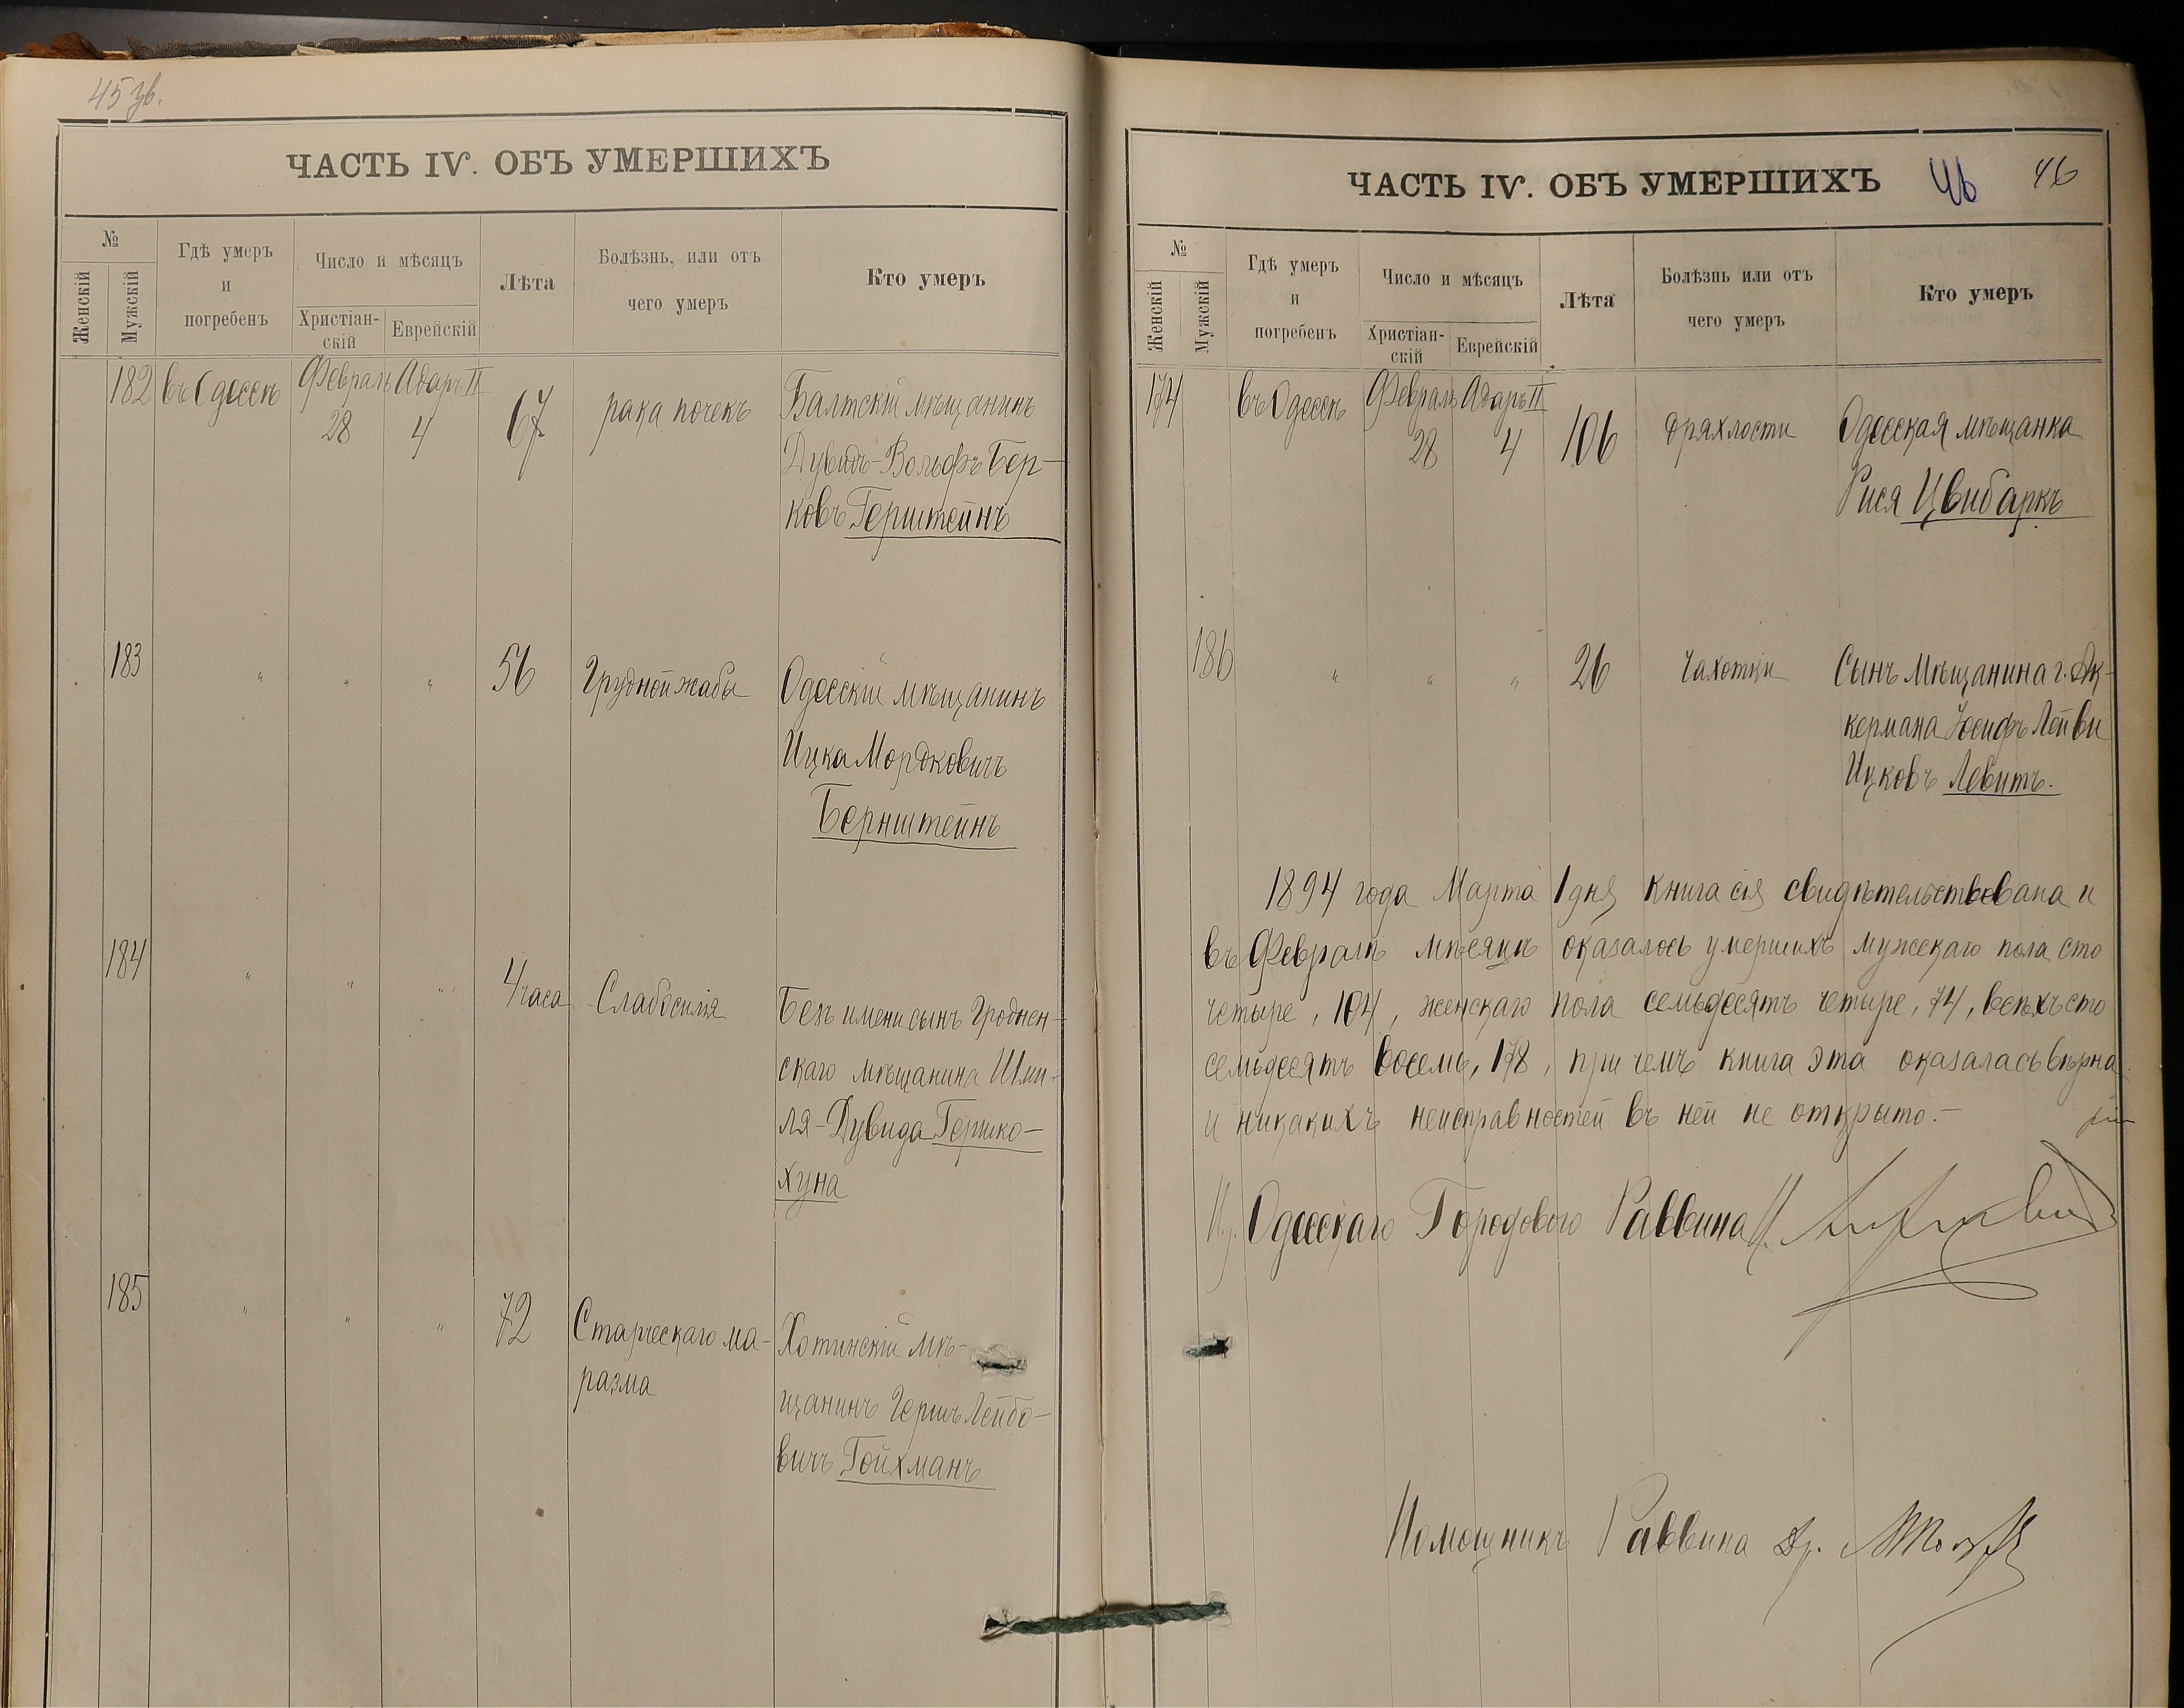 45 зв.
ЧАСТЬ IV. ОБЪ УМЕРШИХЪ
№
Женскій
Мужскій
Гдѣ умеръ
и
погребенъ
Число и мѣсяцъ
Христіан-
скій
Еврейскій
Лѣта
Болѣзнь, или отъ
чего умеръ
Кто умеръ
182 въ Одессѣ Февраль Адаръ II 67 рака почекъ Балтскій мѣщанинъ
28 4 Дувидъ-Вольфъ Бер-
ковъ Герштейнъ
183 " " " 56 Грудной жабы Одесскій мѣщанинъ
Ицка Мордковичъ
Бернштейнъ
184 " " " 4 часа Слабосилія Безъ имени сынъ Гроднен-
скаго мѣщанина Шми-
ля-Дувида Гершко-
хуна
185 " " " 72 Старческаго ма- Хотинскій мѣ-
разма щанинъ Гершъ Лейбо-
вичъ Гойхманъ
ЧАСТЬ IV. ОБЪ УМЕРШИХЪ 46 46
№
Женскій
Мужскій
Гдѣ умеръ
и
погребенъ
Число и мѣсяцъ
Христіан-
скій
Еврейскій
Лѣта
Болѣзнь или отъ
чего умеръ
Кто умеръ
174 въ Одессѣ Февраль Адаръ II 106 дряхлости Одесская мѣщанка
28 4 Рися Цвибаркъ
186 " " " 26 Чахотки Сынъ Мѣщанина г. Ак-
кермана Іосифъ Лейви
Ицковъ Левитъ.
1894 года Марта 1 дня книга сія свидѣтельствована и
въ Февралѣ мѣсяцѣ оказалось умершихъ мужскаго пола сто
четыре, 104, женскаго пола семьдесятъ четыре, 74, всѣхъ сто
семьдесятъ восемь, 178, при чемъ книга эта оказалась вѣрна
и никакихъ неисправностей въ ней не открыто.-
И.д. Одесскаго Городового Раввина
Помощникъ Раввина Др.